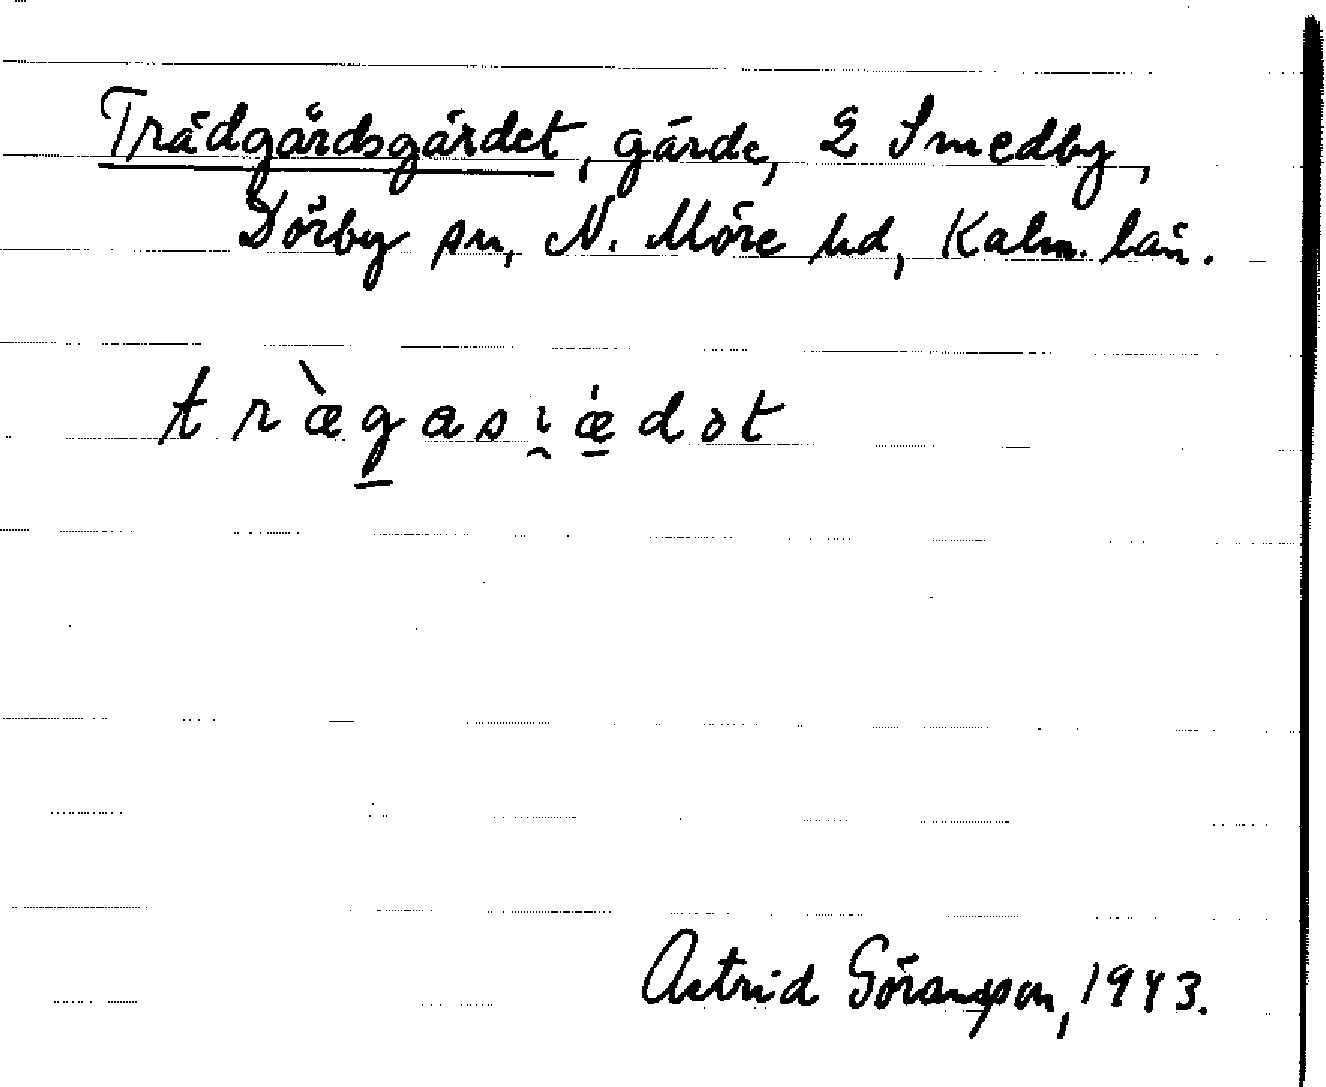 Trädgårdsgärdet, gärde, 2 Smedby,
Dörby sn, N. Möre hd, Kalm. län.
træ̀gasi̯ǽdɔt
Astrid Göransson, 1943.